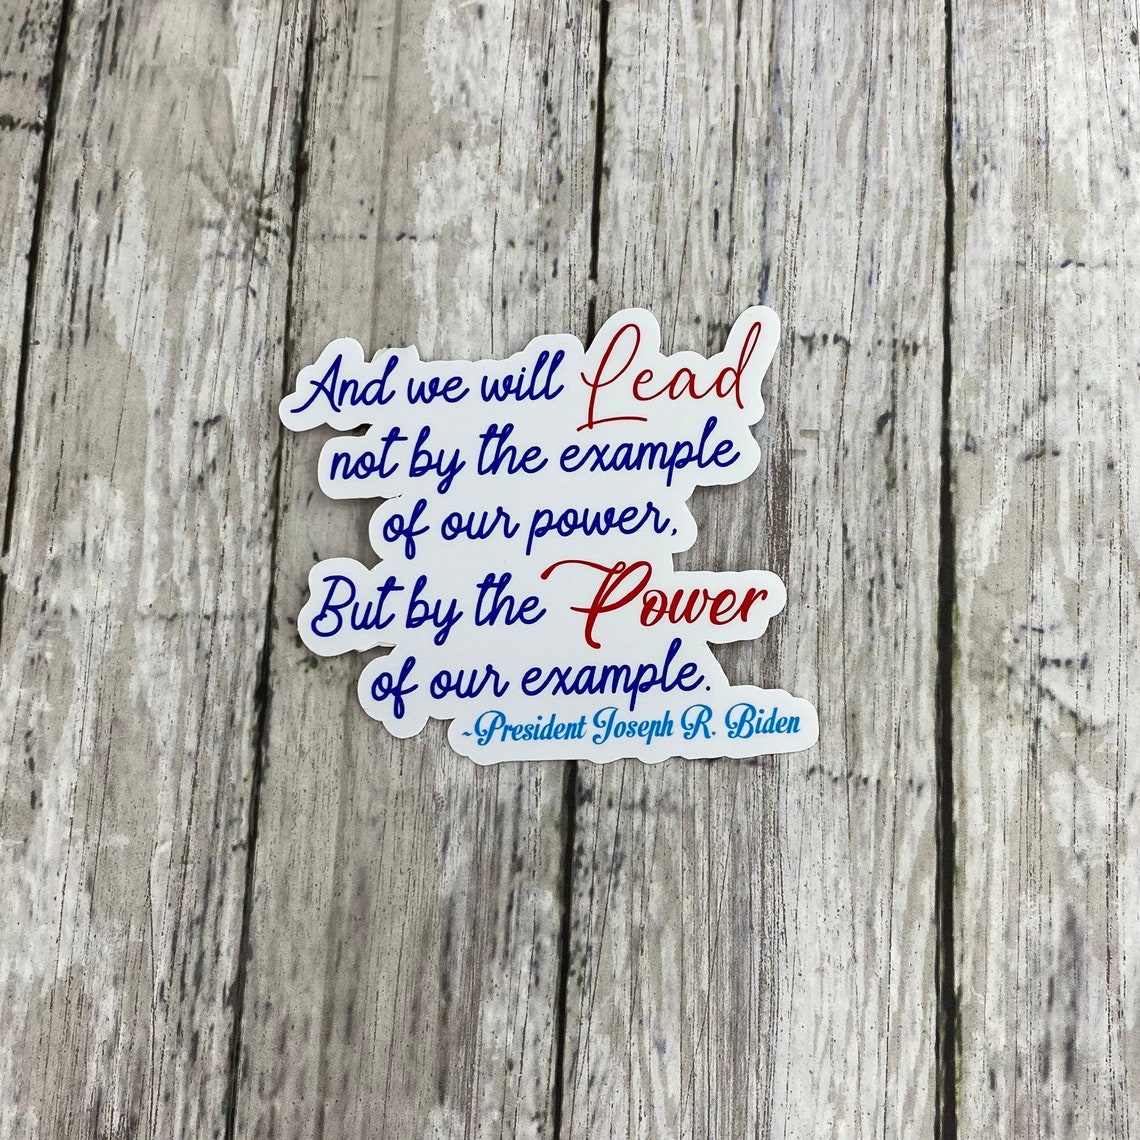 And we will Lead
not by the example
of our power,
But by the Power
of our example.
~President Joseph R. Biden